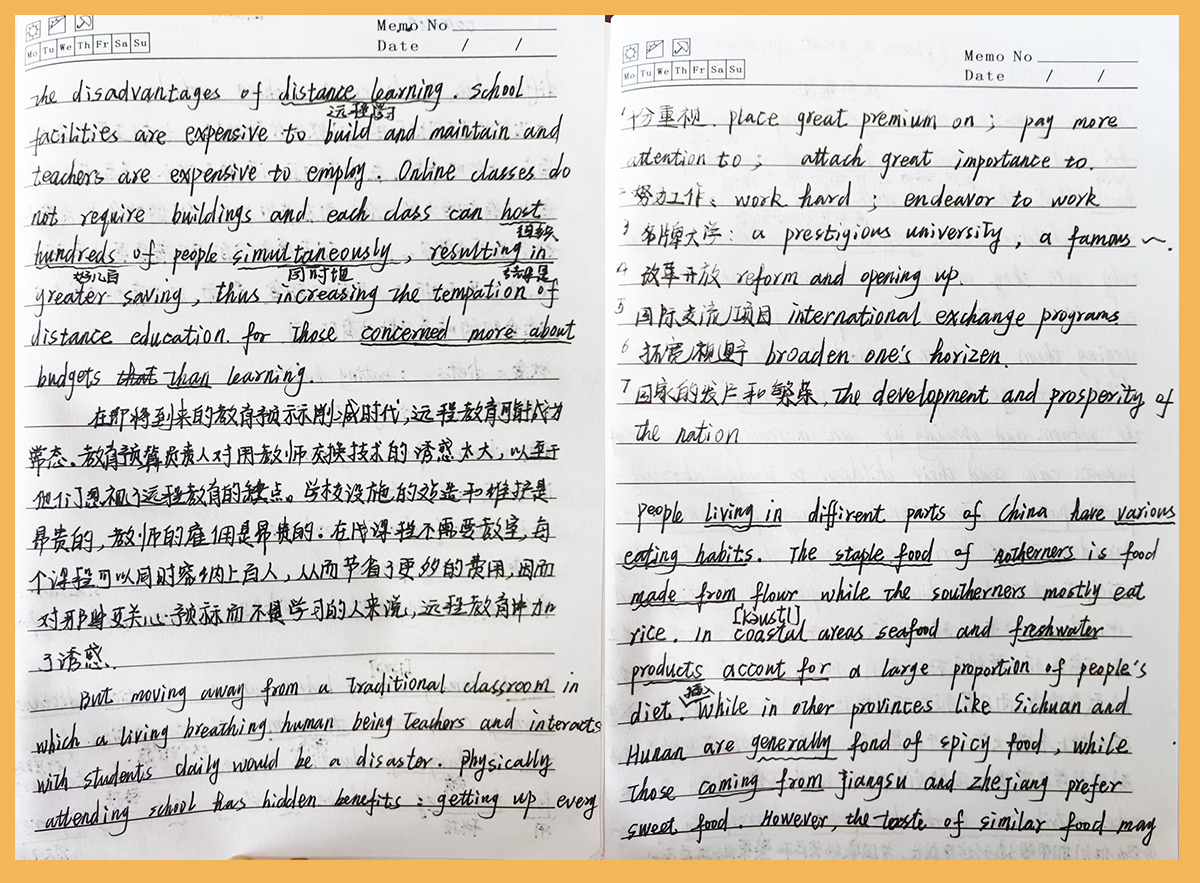 Memo No
Mo Tu We Th Fr Sa Su
Date / /
the disadvantages of distance learning. School
远程学习
facilities are expensive to build and maintain and
teachers are expensive to employ. Online classes do
not require buildings and each class can host
hundreds of people simultaneously, resulting in
好几百 同时地 结果是
greater saving, thus increasing the tempation of
distance education for those concerned more about
budgets that than learning.
在即将到来的教育预示削减时代,远程教育可能成为
常态。教育预算负责人对用教师交换技术的诱惑太大,以至于
他们忽视了远程教育的缺点。学校设施的建造和维护是
昂贵的,教师的雇佣是昂贵的:在线课程不需要教室,每
个课程可以同时容纳上百人,从而节省了更多的费用,因而
对那些更关心预标而不是学习的人来说,远程教育增加
了诱惑.
But moving away from a traditional classroom in
which a living breathing human being teachers and interacts
with students daily would be a disaster. physically
attending school has hidden benefits: getting up every
Memo No
Mo Tu We Th Fr Sa Su
Date / /
1 十分重视. place great premium on; pay more
attention to; attach great importance to.
2 努力工作: work hard; endeavor to work
3 名牌大学: a prestigious university, a famous ~.
4 改革开放 reform and opening up.
5 国际交流/项目 international exchange programs
6 拓宽/视野 broaden one's horizen.
7 国家的发展和繁荣, the development and prosperity of
the nation
people living in diffirent parts of China have various
eating habits. The staple food of notherners is food
made from flour while the southerners mostly eat
[kəustl]
rice. in coastal areas seafood and freshwater
products accont for a large proportion of people's
插入
diet. While in other provinces like Sichuan and
Hunan are generally fond of spicy food, while
those coming from Jiangsu and zhejiang prefer
sweet food. However, the taste of similar food may